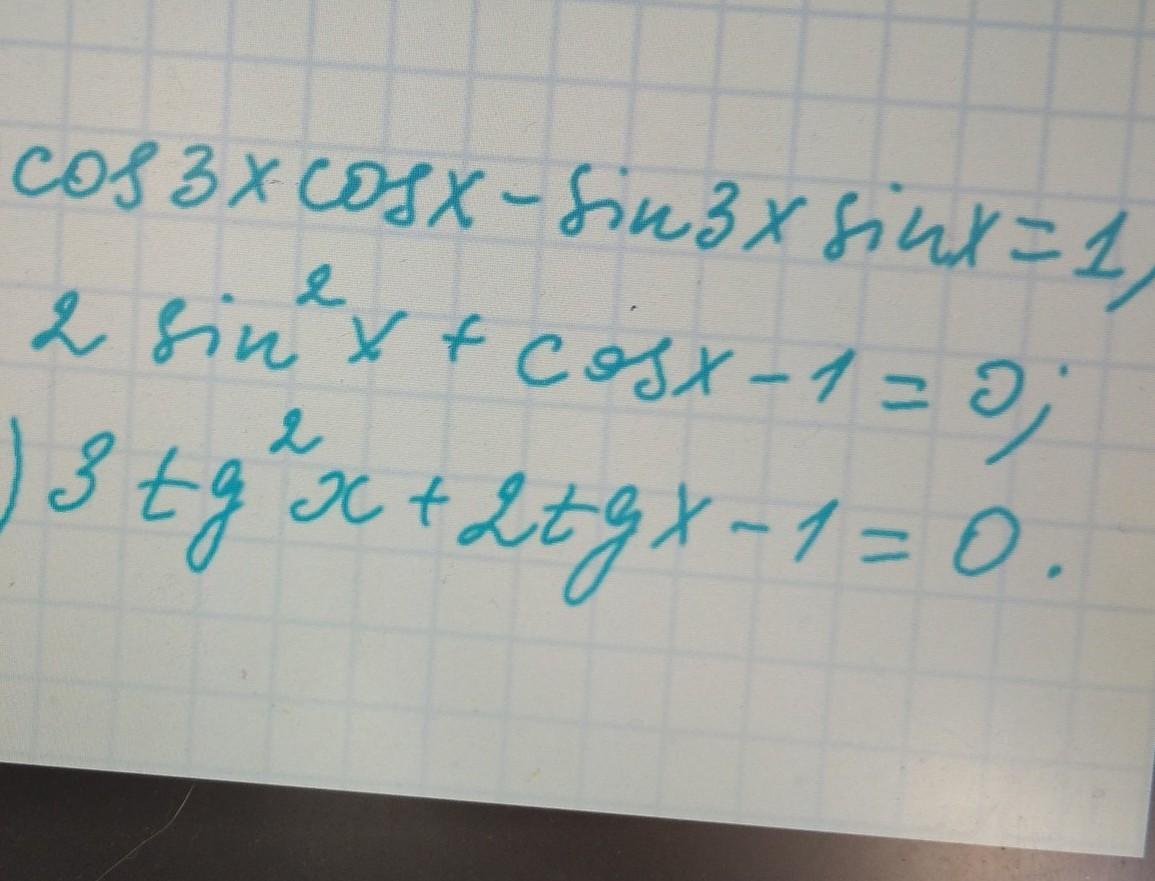 cos3xcosx-sin3xsinx=1,
2 sin²x + cosx-1=0;
) 3 tg²x+2tgx-1=0.